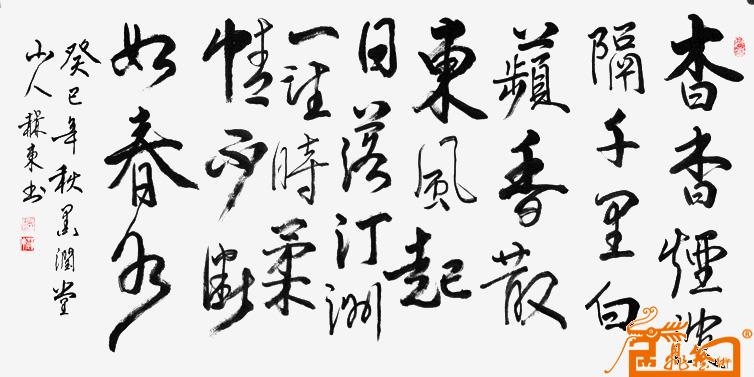 杳杳煙波
隔千里白
蘋香散
東風起
日落汀洲
一望時柔
情不斷
如春水
癸巳年秋墨潤堂
山人東书